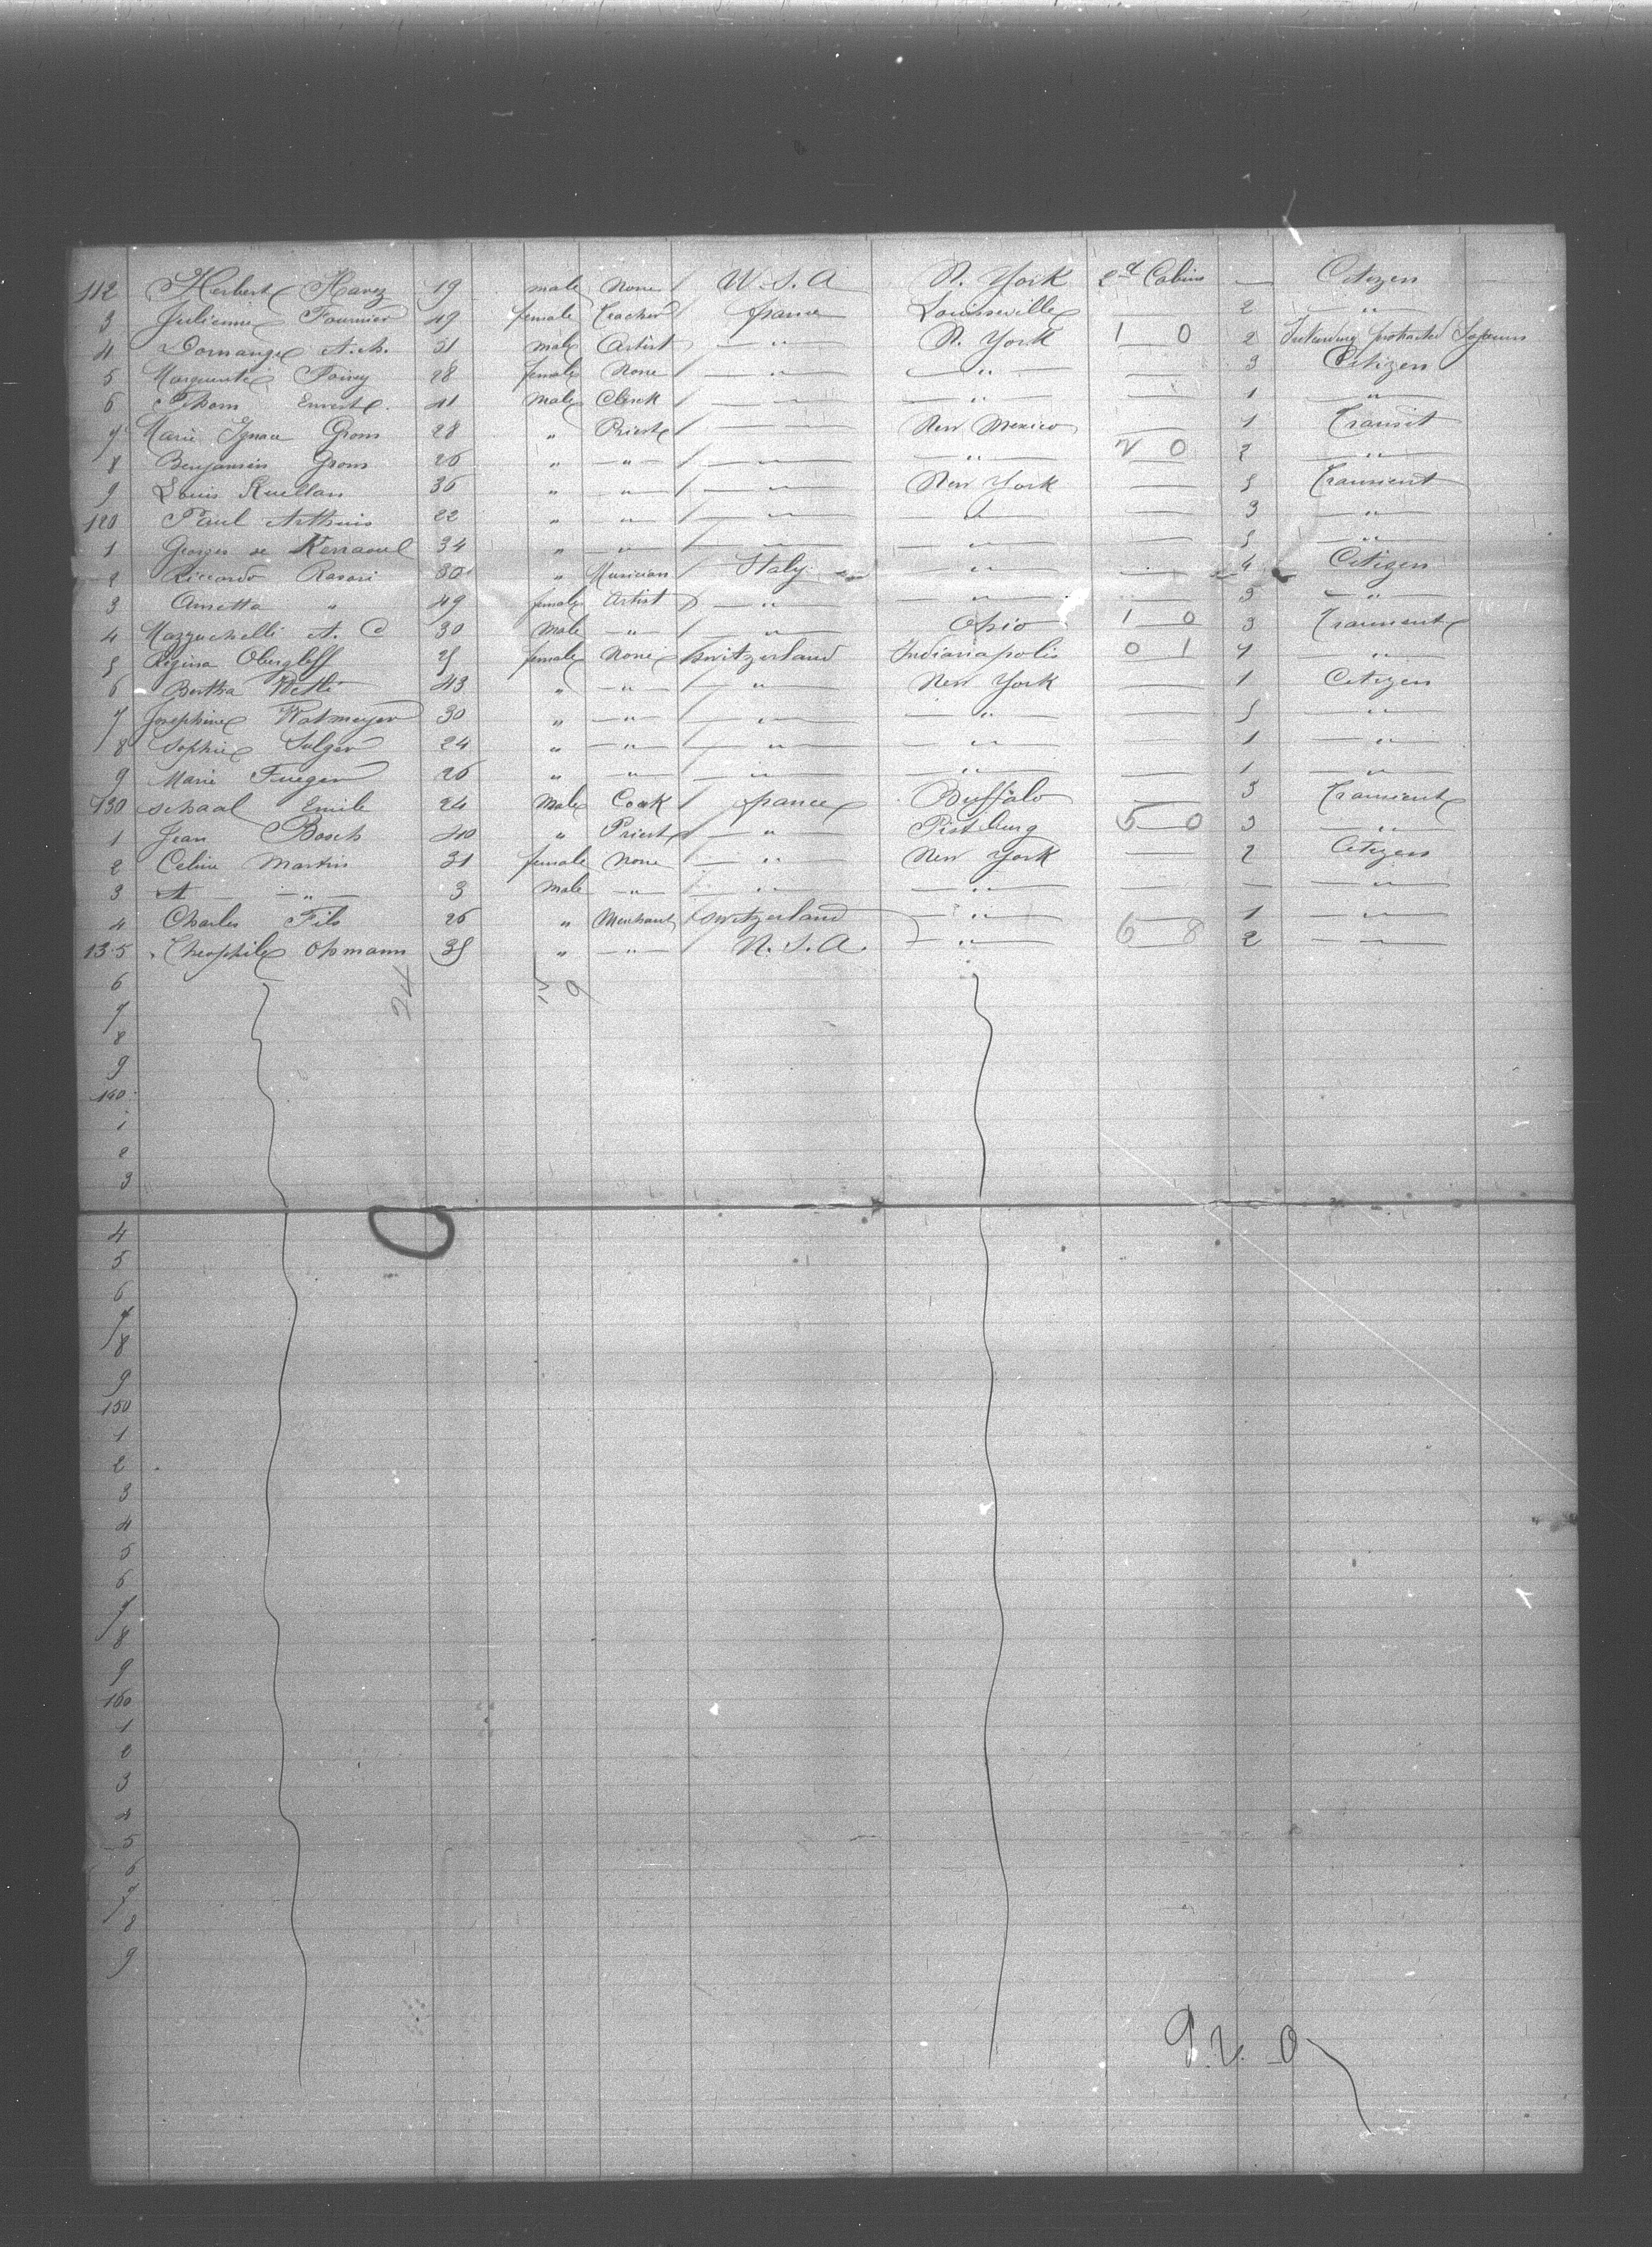 112 Herbert Havez 19 male None / U.S.A N. York 2d Cabin — Citizen
3 Julienne Fournier 49 female Teacher / france Louisville — 2 — " —
4 Dornange A. 31 male Artist — " — N. York 1 0 2 Intending protracted Sojourn
5 Marguerite 28 female None / — " — — " — — 3 Citizen
6 Thorn Ernest 41 male Clerk / — " — — " — — 1 — " —
7 Marie Ignace Grom 28 " Priest / — " — New Mexico — 1 Transit
8 Benjamin Grom 26 " — " — / — " — — " — 2 0 2 — " —
9 Louis Ruellan 36 " — " — / — " — New York — 5 Transient
120 Paul Arthuis 22 " — " — / — " — — " — — 3 — " —
1 Georges de Kerraoul 34 " — " — / — " — — " — — 5 — " —
2 Riccardo Rasori 30 " Musician / Italy — " — — 4 Citizen
3 " 49 female Artist — " — — " — — 3 — " —
4 Mazzuchelli A. C 30 Male — " — / — " — Ohio 1 0 3 Transient
5 Regina 25 female None Switzerland Indianapolis 0 1 1 — " —
6 Bertha 43 " — " — / — " — New York — 1 Citizen
7 Josephine 30 " — " — / — " — — " — — 5 — " —
8 Sophie Sulger 24 " — " — / — " — — " — — 1 — " —
9 Marie Fueger 26 " — " — / — " — — " — — 1 — " —
130 schaal Emile 24 Male Cook / france Buffalo — 3 Transient
1 Jean Bosch 40 " Priest / — " — Pistburg 5 0 3 — " —
2 Celine Martin 31 female None / — " — New York — 2 Citizen
3 A — " — 3 Male — " — / — " — — " — — — — " —
4 Charles Fils 26 " Merchant / Switzerland — " — 1 — " —
135 Theophile 35 " — " — U.S.A. — " — 6 8 2 — " —
6 24 15 9
7
8
9
140
1
2
3
4
5
6
7
8
9
150
1
2
3
4
5
6
7
8
9
160
1
2
3
4
5
6
7
8
9